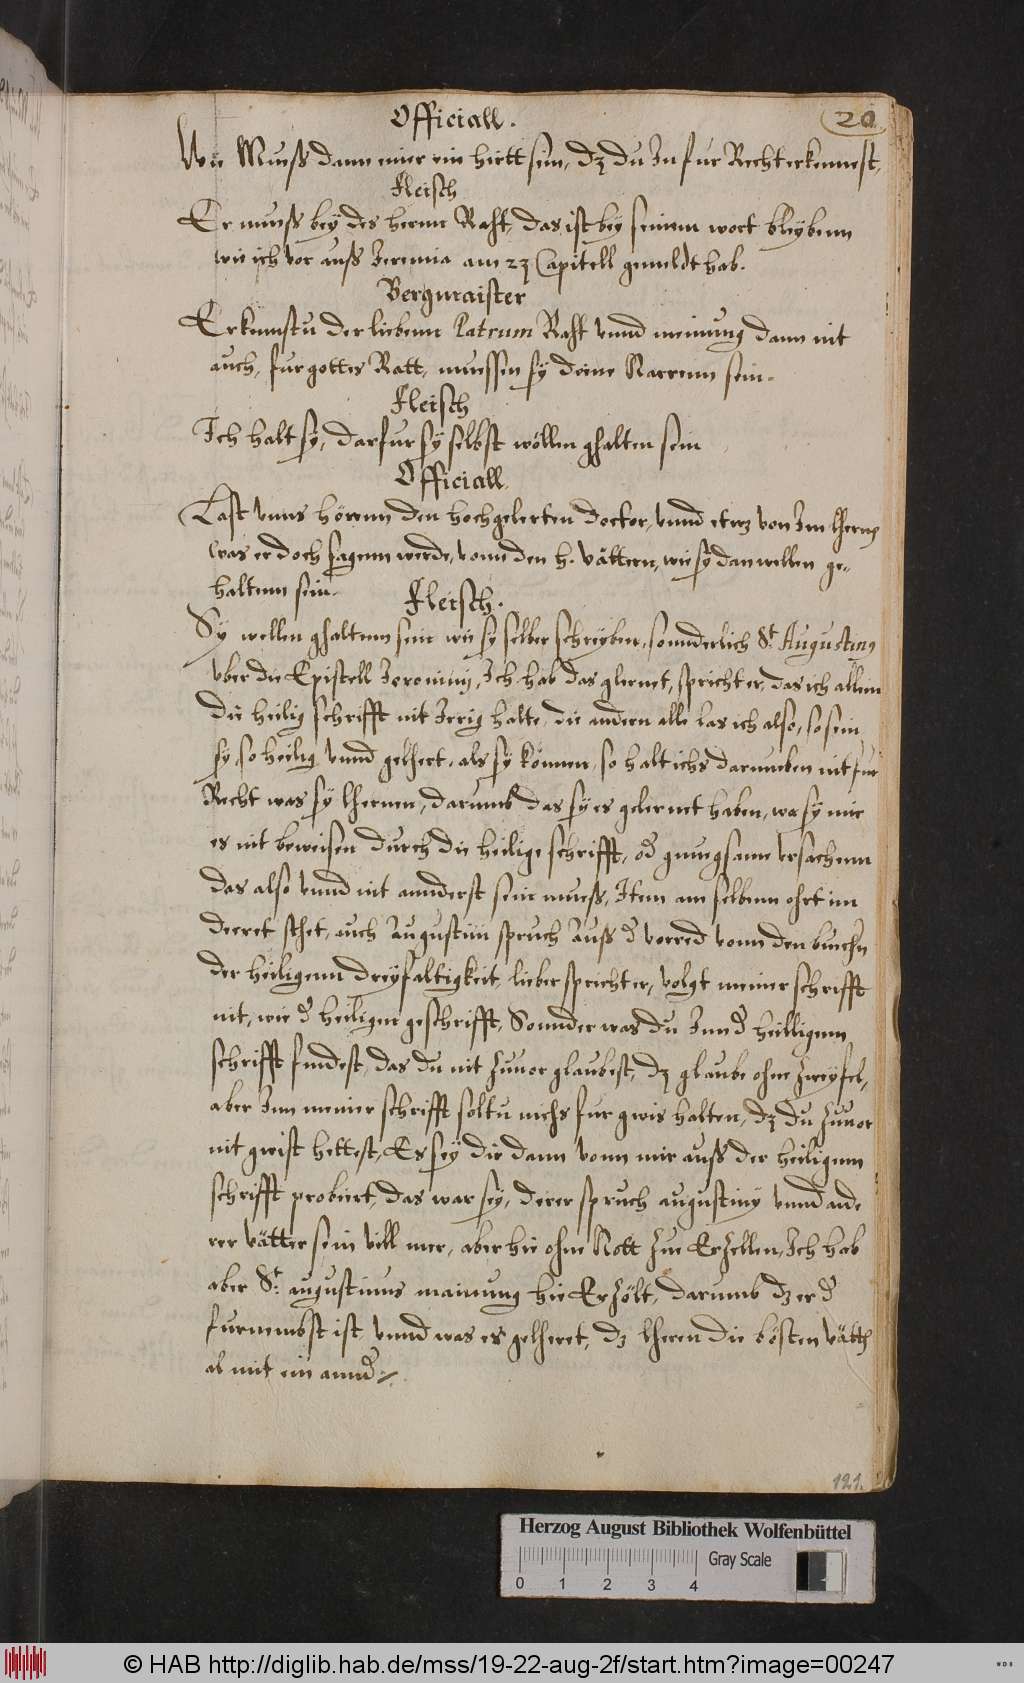 Officiall.
20
Wie Mueß dann einer ein hirtt sein, dz du In fur Recht erkennest,
Fleisch
Er mueß bey des herrnn Raht, das ist bey seinem wort bleybenn
wie ich vor auß Jeremia am 23 Capitell gemeldt hab.
Bergmaister
Erkennstu der liebenn Patrum Raht vnnd meinung dann nit
auch, fur gottes Ratt, muessen sy deine Narrenn sein.
Fleisch
Ich halt sy, darfur sy selbst wöllen ghalten sein
Officiall
Last vnns hörenn den hochgelerten doctor, vnnd etwz von Im lhernen
was er doch sagenn werde, vonn den h. vättern, wie sy dan wellen ge-
haltenn sein.
Fleisch.
Sy wellen ghaltenn sein wie sy selber schreyben, sonnderlich St. Augustinus
vber die Epistell Jeronimj, Ich hab das glernet, spricht er, das ich allein
die heilig schrifft nit Irrig halte, die andern alle las ich also, so sein
sy, so heilig vnnd gelhert, als sy können, so halt ichs darumben nit fur
Recht was sy lhernen, darumb das sy es gelernet haben, wa sy mir
es nit beweisen durch die heilige schrifft, od gnungsamm vrsachenn
das also vnnd nit annderst sein mueß, Item am selbenn ohrt im
decret sthet, auch Augustin spruch Auß d vorred vonn den buechn
der heiligenn dreyfaltigkeit, lieber spricht er, volgt meiner schrifft
nit, wie d heiligen geschrifft, Sonnder was du Inn d heilligenn
schrifft findest, das du nit zuuor glaubest, dz glaube ohne zweyfel,
aber Inn meiner schrifft soltu nichs fur gwis halten, dz du zuuor
nit gwist hettest, Es sey dir dann vonn mir auß der heiligenn
schrifft probiert, das war sey, derer spruch augustiny vnnd ande
rer vätter sein vill mer, aber hie ohne Nott zue Erzellen, Ich hab
aber St. augustinus mainung hie Erzölt, darumb dz er d
furnembst ist, vnnd was er gelheret, dz lheren die bösten vätt
al mit ein annd
121.
Herzog August Bibliothek Wolfenbüttel
0 1 2 3 4 Gray Scale
© HAB http://diglib.hab.de/mss/19-22-aug-2f/start.htm?image=00247